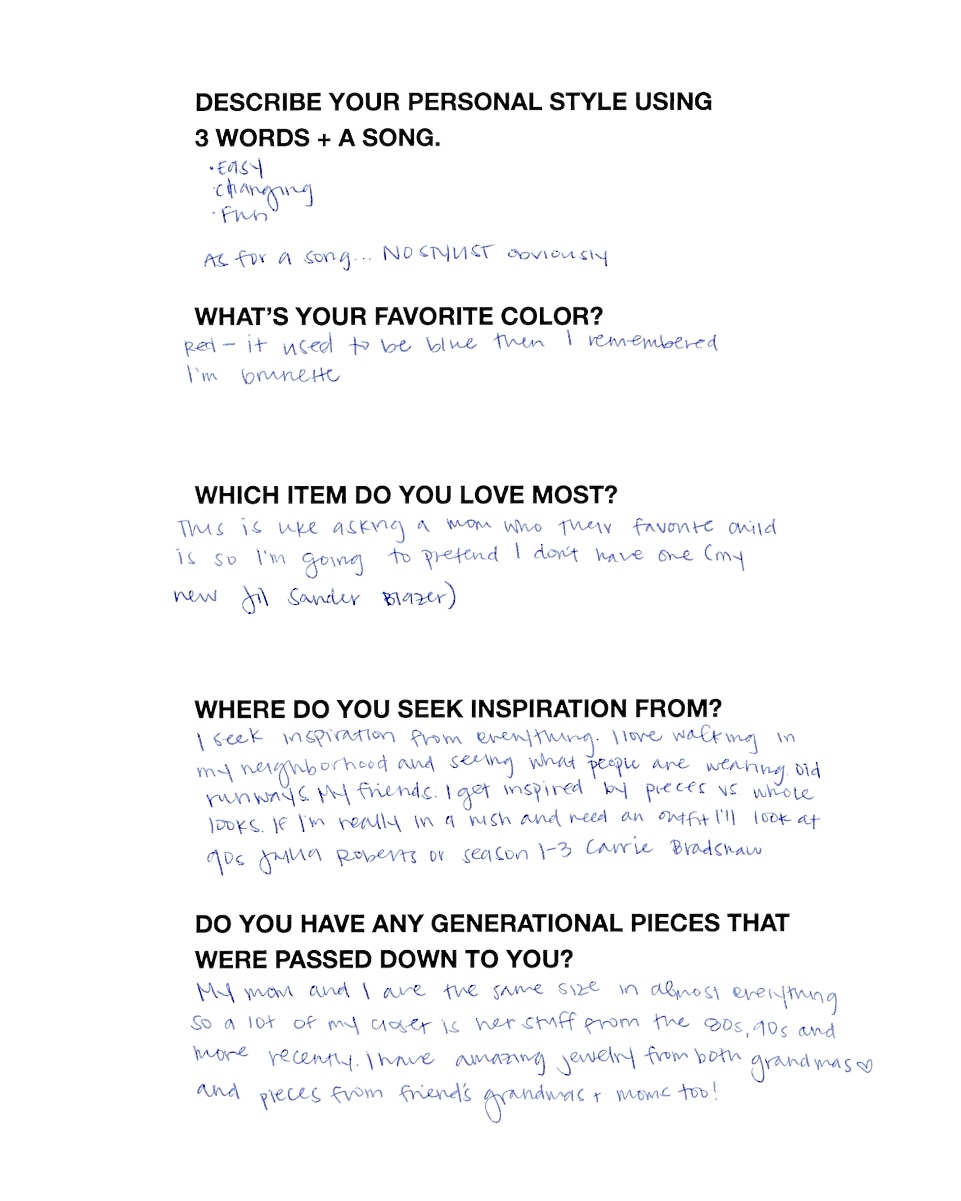 DESCRIBE YOUR PERSONAL STYLE USING
3 WORDS + A SONG.
·Easy
·changing
·Fun
As for a song... NO STYLIST obviously
WHAT'S YOUR FAVORITE COLOR?
Red – it used to be blue then I remembered
I'm brunette
WHICH ITEM DO YOU LOVE MOST?
This is like asking a mom who their favorite child
is so I'm going to pretend I don't have one (my
new Jil Sander Blazer)
WHERE DO YOU SEEK INSPIRATION FROM?
I seek inspiration from everything. I love walking in
my neighborhood and seeing what people are wearing. Old
runways. My friends. I get inspired by pieces vs whole
looks. If I'm really in a rush and need an outfit I'll look at
90s Julia Roberts or season 1-3 Carrie Bradshaw
DO YOU HAVE ANY GENERATIONAL PIECES THAT
WERE PASSED DOWN TO YOU?
My mom and I are the same size in almost everything
so a lot of my closet is her stuff from the 80s, 90s and
more recently. I have amazing jewelry from both grandmas ♡
and pieces from friend's grandmas + moms too!